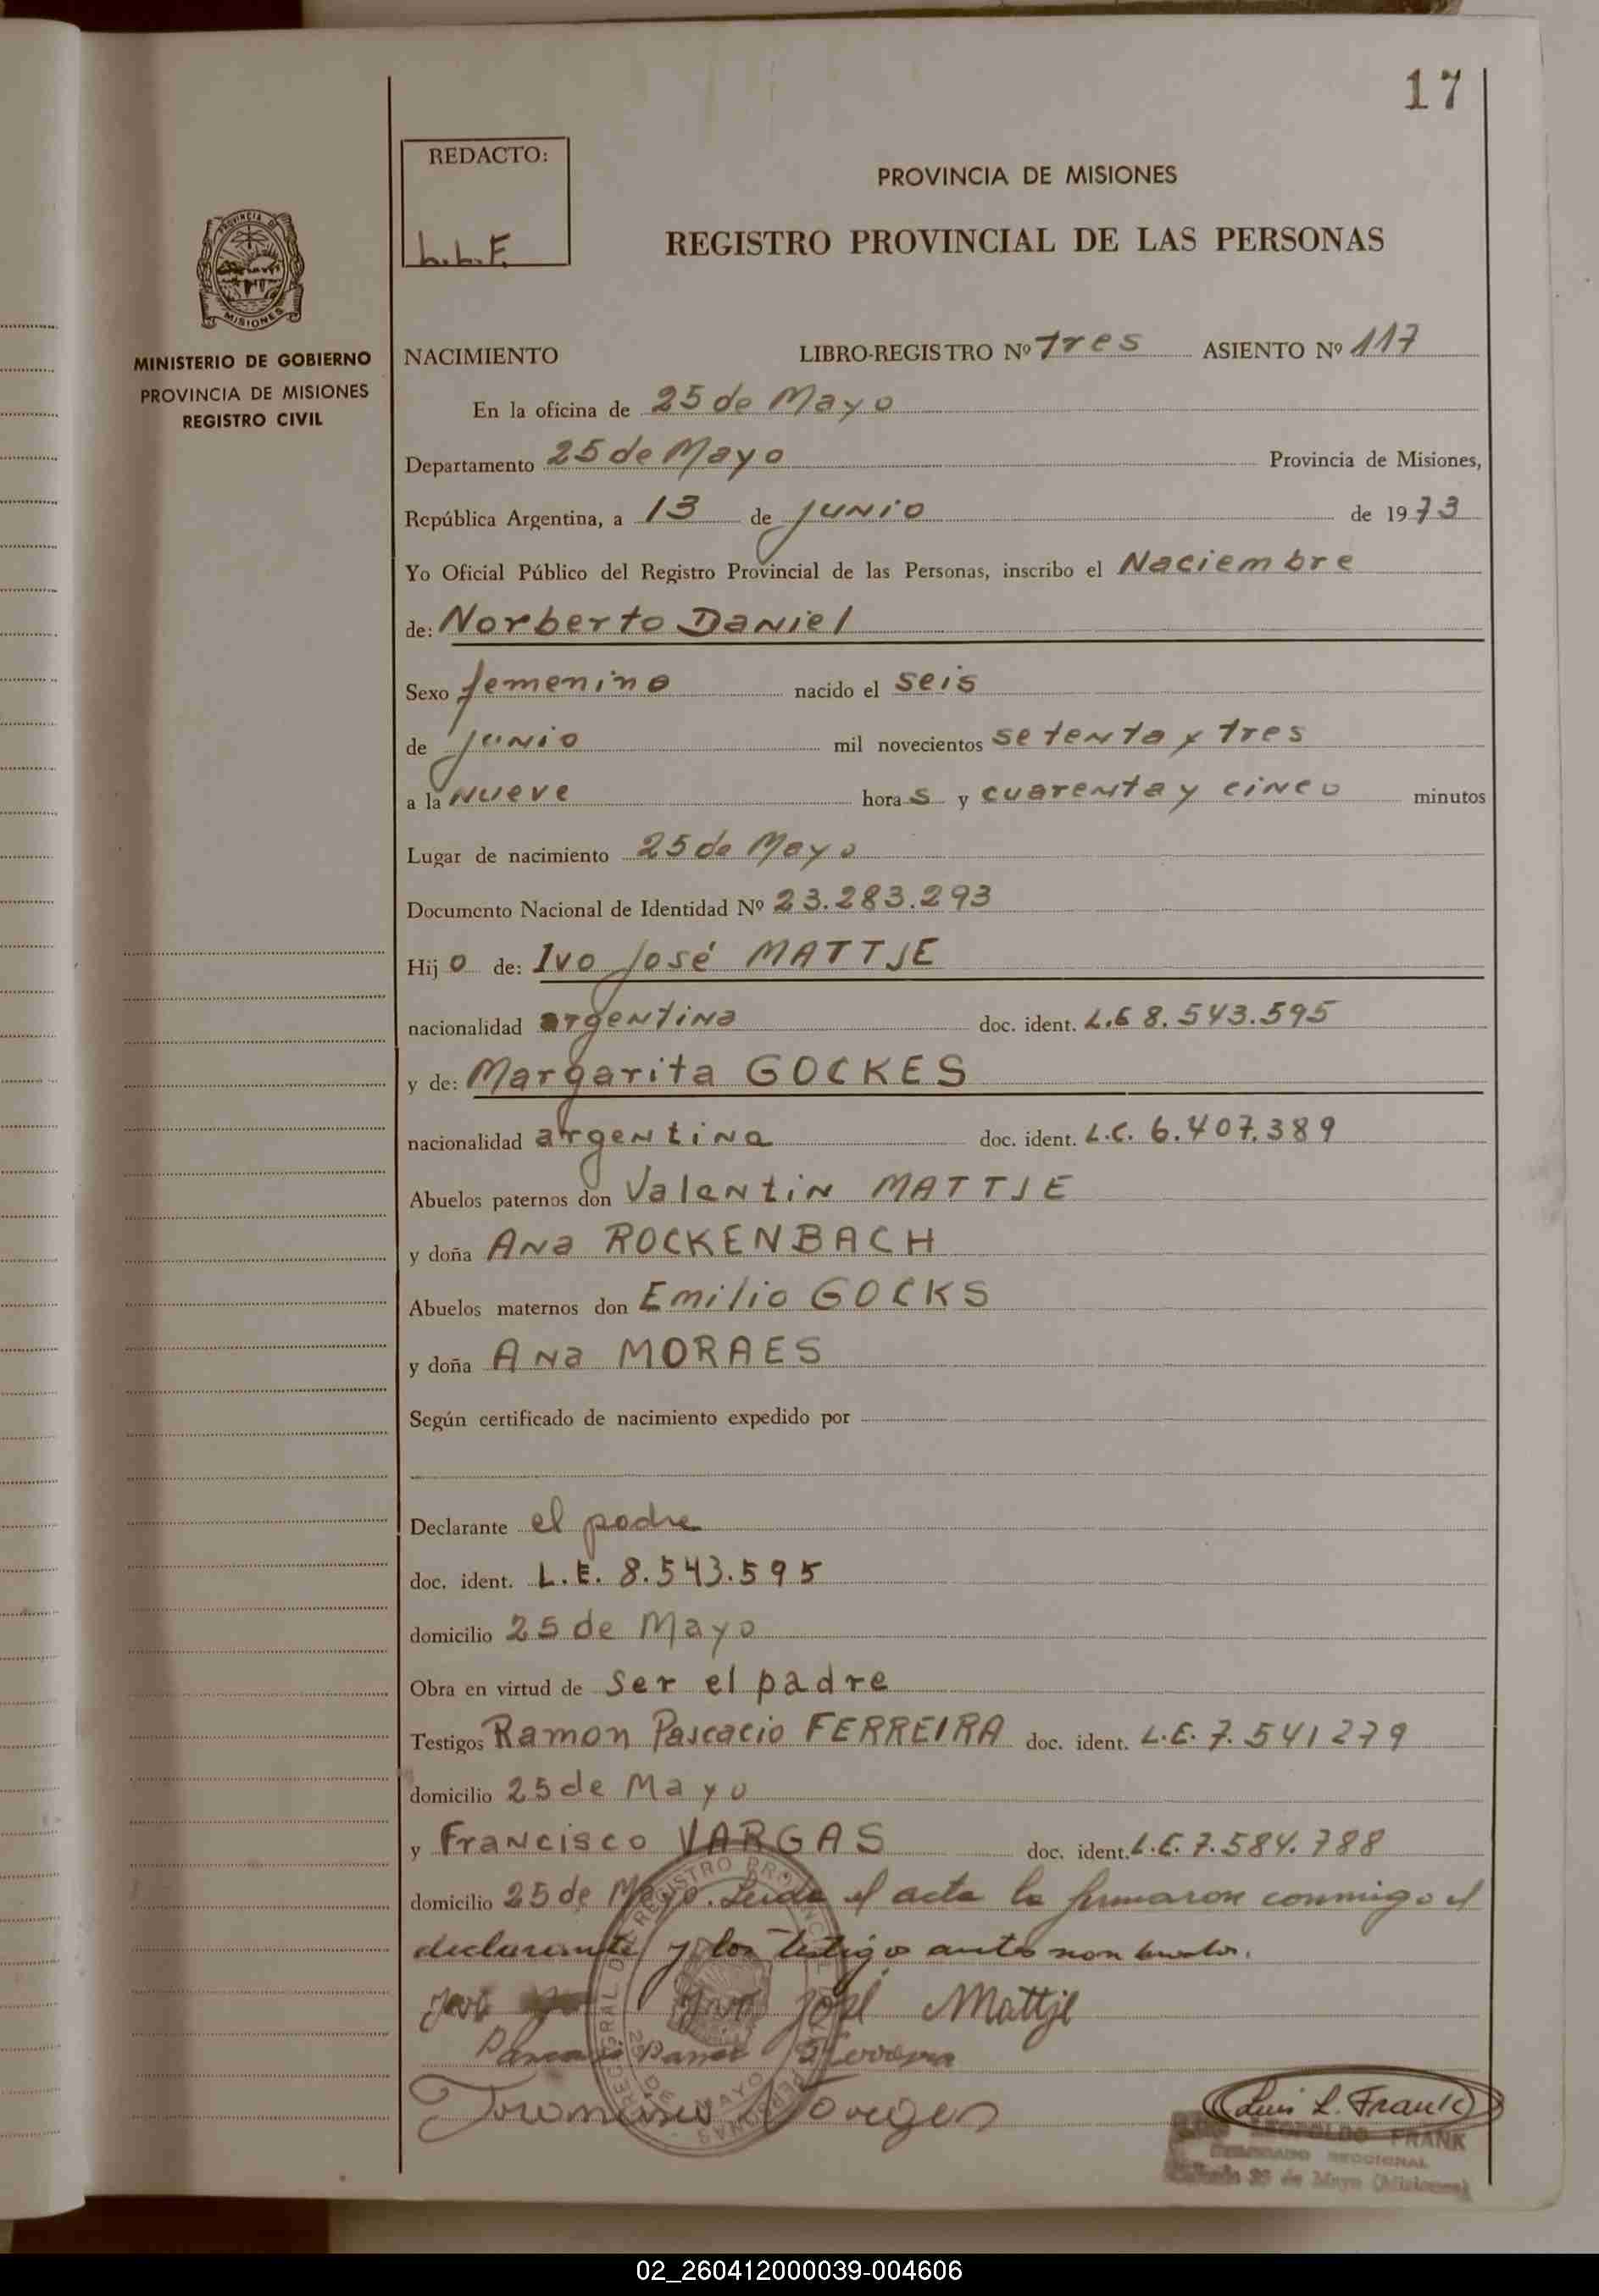 17
REDACTO:
L.L.F.
PROVINCIA DE MISIONES
REGISTRO PROVINCIAL DE LAS PERSONAS
PROVINCIA DE
MISIONES
MINISTERIO DE GOBIERNO
PROVINCIA DE MISIONES
REGISTRO CIVIL
NACIMIENTO LIBRO-REGISTRO Nº Tres ASIENTO Nº 117
En la oficina de 25 de Mayo
Departamento 25 de Mayo Provincia de Misiones,
República Argentina, a 13 de junio de 1973
Yo Oficial Público del Registro Provincial de las Personas, inscribo el Naciembre
de: Norberto Daniel
Sexo femenino nacido el seis
de junio mil novecientos setenta y tres
a la nueve horas y cuarenta y cinco minutos
Lugar de nacimiento 25 de Mayo
Documento Nacional de Identidad Nº 23.283.293
Hijo de: Ivo José MATTJE
nacionalidad argentina doc. ident. L.E 8.543.595
y de: Margarita GOCKES
nacionalidad argentina doc. ident. L.C. 6.407.389
Abuelos paternos don Valentin MATTJE
y doña Ana ROCKENBACH
Abuelos maternos don Emilio GOCKS
y doña Ana MORAES
Según certificado de nacimiento expedido por
Declarante el padre
doc. ident. L.E. 8.543.595
domicilio 25 de Mayo
Obra en virtud de ser el padre
Testigos Ramon Pascacio FERREIRA doc. ident. L.E. 7.541279
domicilio 25 de Mayo
y Francisco VARGAS doc. ident. L.E. 7.584.788
domicilio 25 de Mayo. Leida el acta la firmaron conmigo el
declarante y los testigos antes nombrados.
José Mattje
Luis L. Frank
LEOPOLDO FRANK
25 de Mayo (Misiones)
02_260412000039-004606